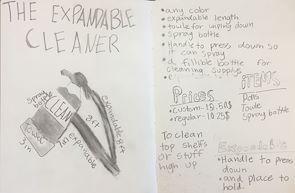 THE EXPANDABLE
CLEANER
Spray
bottle
CLEAN
expandable 8ft
2ft
7in expandable
3in
• any color
• expandable length
• towle for wiping down
• Spray bottle
• Handle to press down so
it can spray
• a fillible bottle for
cleaning supply
Prices
• Custom - 12.50$
• regular - 10.25$
ITEMS
Towle
Spray bottle
To clean
top shelfs
or stuff
high up
Expandable
• Handle to press
down
• and place to
hold.